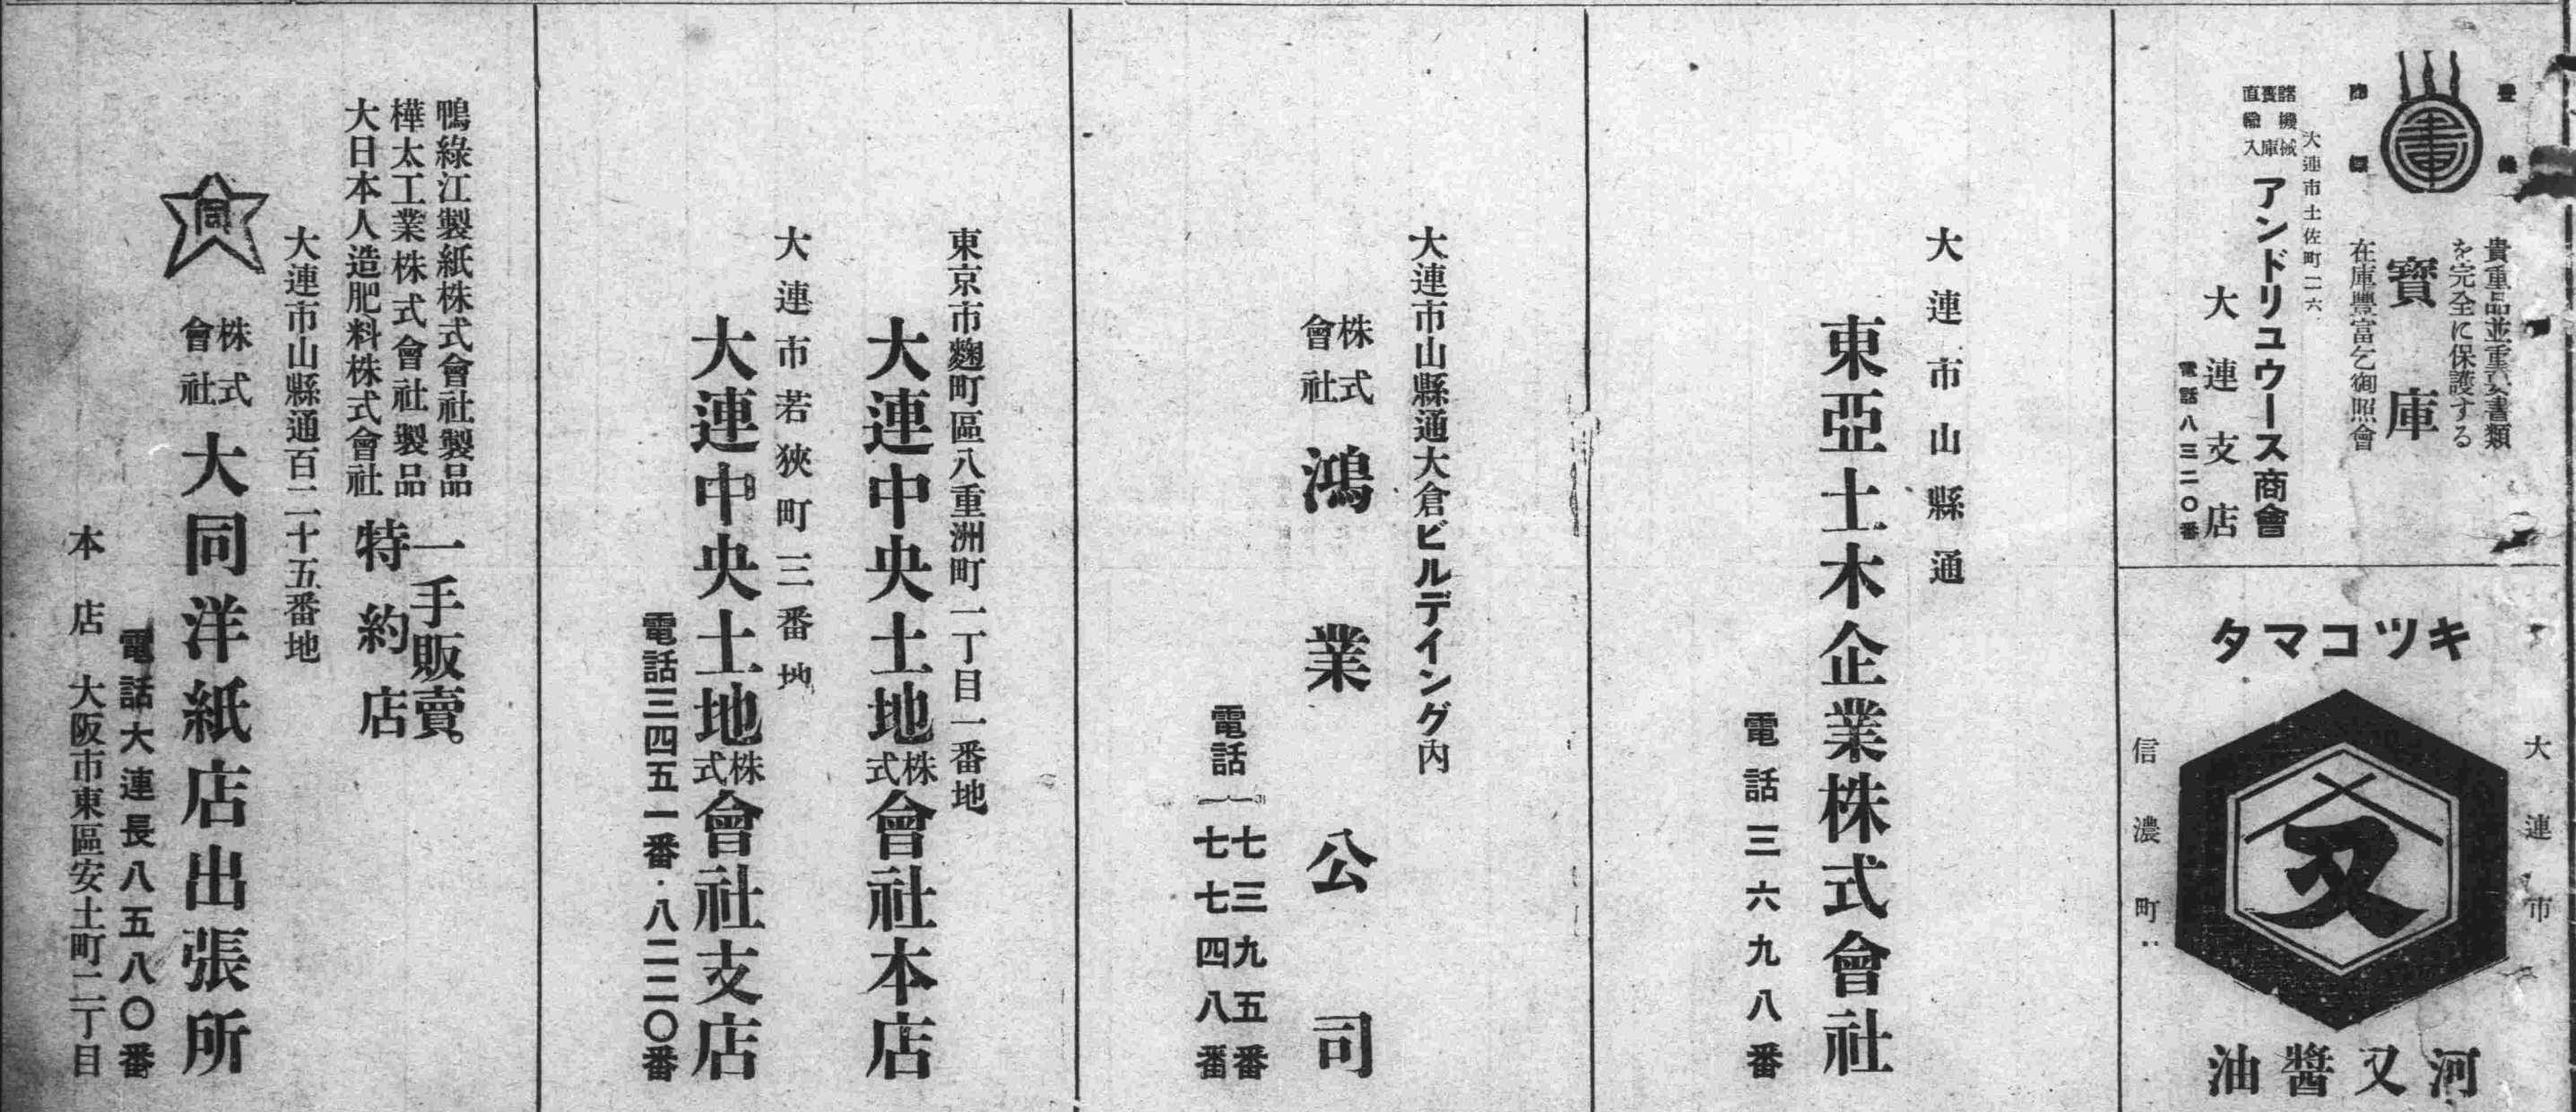 登録
商標
貴重品並重要書類
を完全に保護する
寶庫
在庫豐富乞御照會
大連市土佐町一一六
諸機械
寶庫
直輸入
アンドリユウース商會
大連支店
電話八三二〇番
キツコマタ
大連市
又
信濃町
河又醬油
大連市山縣通
東亞土木企業株式會社
電話三六九八番
大連市山縣通大倉ビルデイング內
株式會社 鴻業公司
電話 七三九五番
七七四八番
東京市麴町區八重洲町一丁目一番地
大連中央土地株式會社本店
大連市若狹町三番地
大連中央土地株式會社支店
電話三四五一番・八二二〇番
鴨綠江製紙株式會社製品
樺太工業株式會社製品
大日本人造肥料株式會社
一手販賣。
特約店
大連市山縣通百二十五番地
同
株式會社 大同洋紙店出張所
電話大連長八五八〇番
本店 大阪市東區安土町二丁目